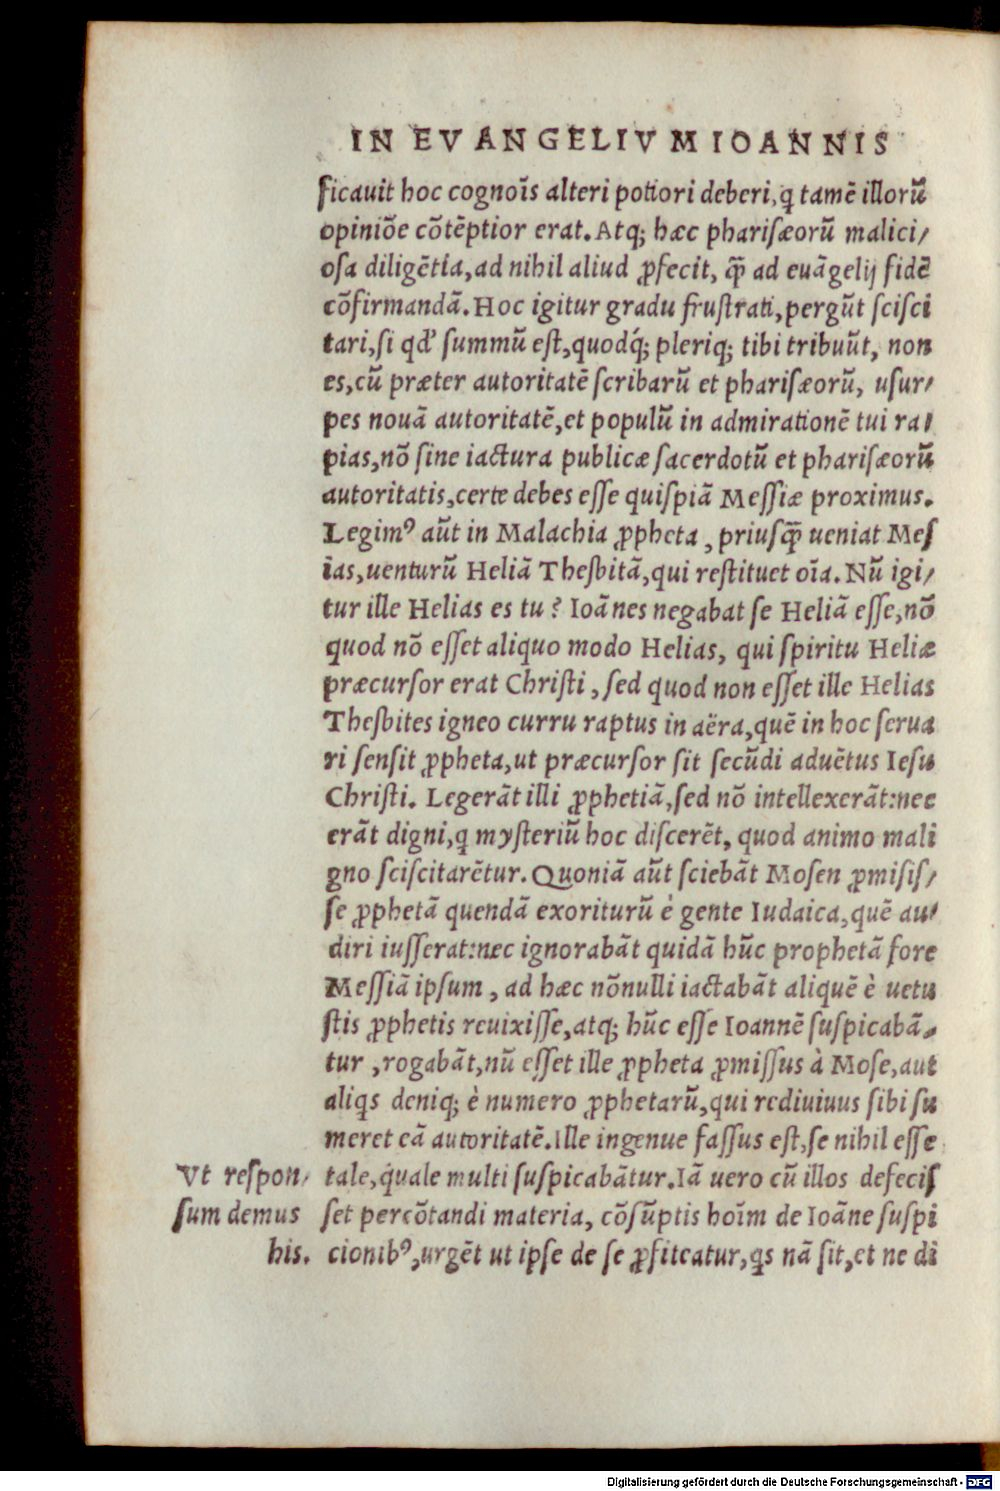 IN EVANGELIVM IOANNIS
ſicauit hoc cognoīs alteri potiori deberi, ꝗ tamē illorū
opiniōe cōtēptior erat. Atq; hæc phariſæorū malici/
oſa diligētia, ad nihil aliud ꝓfecit, ꝙ̃ ad euāgelij fidē
cōfirmandā. Hoc igitur gradu fruſtrati, pergūt ſciſci
tari, ſi qd' ſummū eſt, quodq́; pleriq; tibi tribuūt, non
es, cū præter autoritatē ſcribarū et phariſæorū, uſur/
pes nouā autoritatē, et populū in admirationē tui ra/
pias, nō ſine iactura publicæ ſacerdotū et phariſæorū
autoritatis, certe debes eſſe quiſpiā Meſſiæ proximus.
Legimꝰ aūt in Malachia ꝓpheta, priuſꝙ̃ ueniat Meſ
ias, uenturū Heliā Theſbitā, qui reſtituet oīa. Nū igi/
tur ille Helias es tu? Ioānes negabat ſe Heliā eſſe, nō
quod nō eſſet aliquo modo Helias, qui ſpiritu Heliæ
præcurſor erat Chriſti, ſed quod non eſſet ille Helias
Theſbites igneo curru raptus in aëra, quē in hoc ſerua
ri ſenſit ꝓpheta, ut præcurſor ſit ſecūdi aduētus Ieſu
Chriſti. Legerāt illi ꝓphetiā, ſed nō intellexerāt: nec
erāt digni, ꝗ myſteriū hoc diſcerēt, quod animo mali
gno ſciſcitarētur. Quoniā aūt ſciebāt Moſen ꝓmiſiſ/
ſe ꝓphetā quendā exoriturū è gente Iudaica, quē au/
diri iuſſerat: nec ignorabāt quidā hūc prophetā fore
Meſſiā ipſum, ad hæc nōnulli iactabāt aliquē è uetu
ſtis ꝓphetis reuixiſſe, atq; hūc eſſe Ioannē ſuſpicabā/
tur, rogabāt, nū eſſet ille ꝓpheta ꝓmiſſus à Moſe, aut
aliꝗs deniq; è numero ꝓphetarū, qui rediuiuus ſibi ſu
meret eā autoritatē. Ille ingenue faſſus eſt, ſe nihil eſſe
Vt reſpon/ tale, quale multi ſuſpicabātur. Iā uero cū illos defeciſ
ſum demus ſet percōtandi materia, cōſūptis hoīm de Ioāne ſuſpi
his. cionibꝰ, urgēt ut ipſe de ſe ꝓfiteatur, ꝗs nā ſit, et ne di
Digitalisierung gefördert durch die Deutsche Forschungsgemeinschaft - DFG